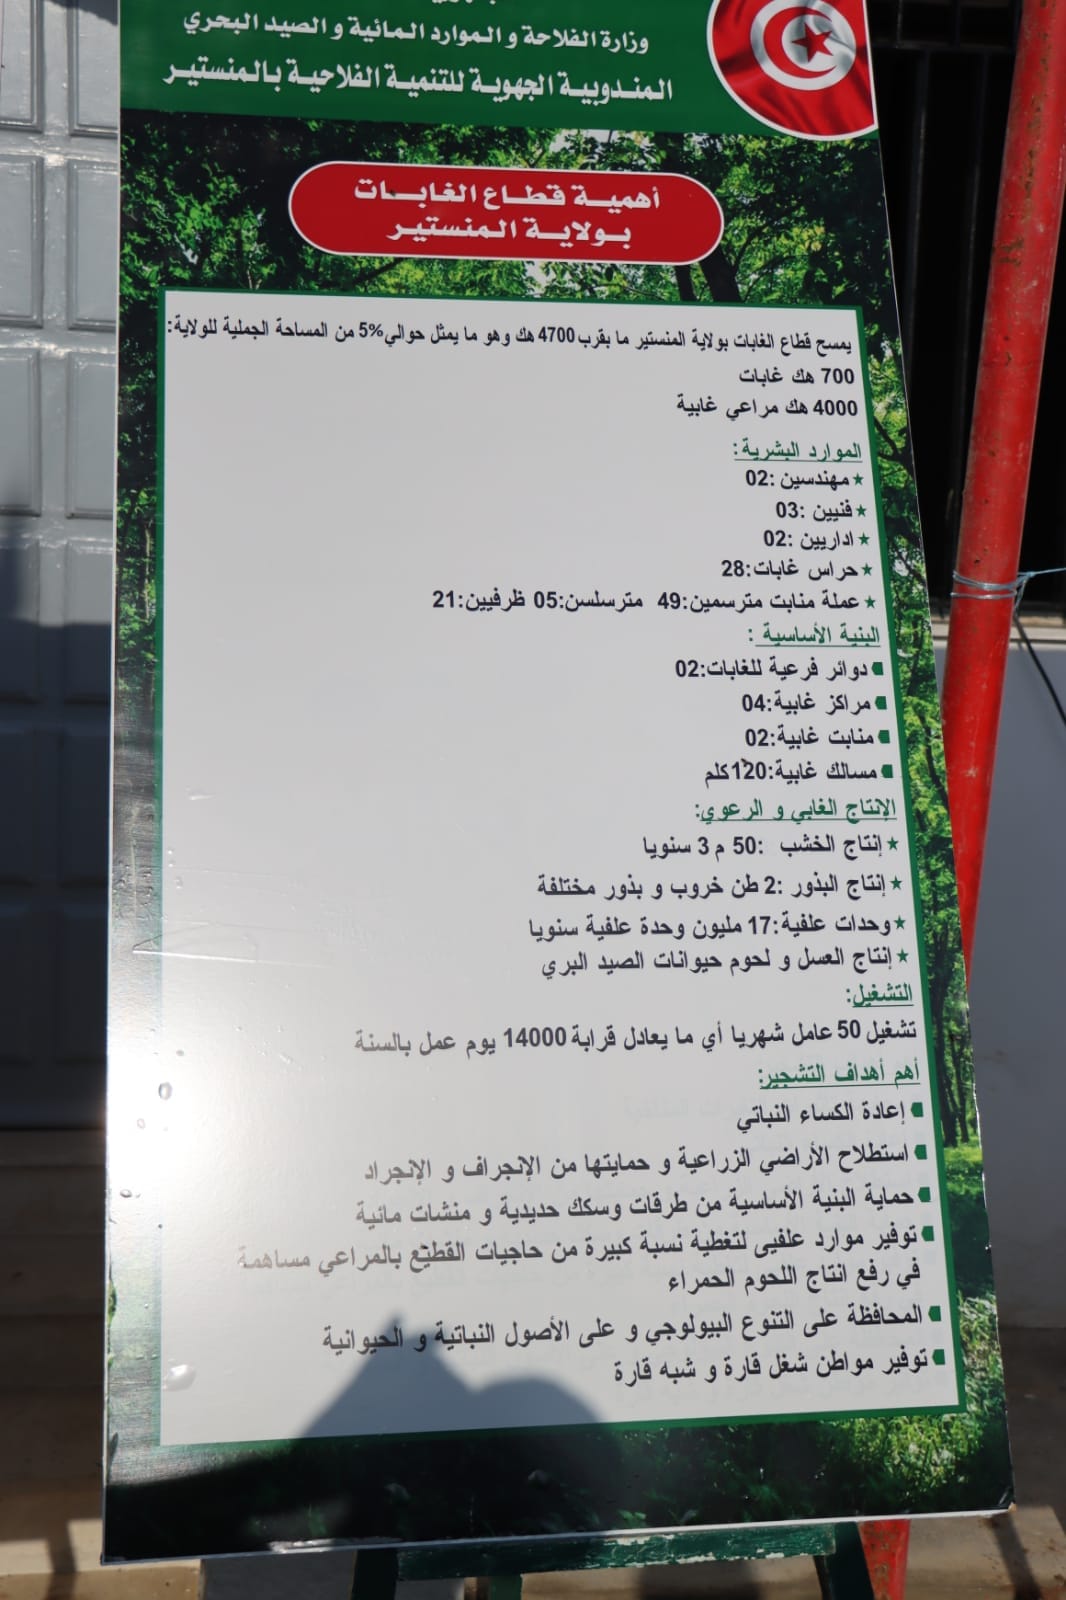 وزارة الفلاحة و الموارد المائية و الصيد البحري
المندوبية الجهوية للتنمية الفلاحية بالمنستير
أهمية قطاع الغابات
بولاية المنستير
يمسح قطاع الغابات بولاية المنستير ما بقرب 4700 هك وهو ما يمثل حوالي 5% من المساحة الجملية للولاية:
700 هك غابات
4000 هك مراعي غابية
الموارد البشرية:
مهندسين :02
فنيين :03
اداريين :02
حراس غابات:28
عملة منابت مترسمين:49 مترسلسن:05 ظرفيين:21
البنية الأساسية :
دوائر فرعية للغابات:02
مراكز غابية:04
منابت غابية:02
مسالك غابية:120كلم
الإنتاج الغابي و الرعوي:
إنتاج الخشب :50 م 3 سنويا
إنتاج البذور :2 طن خروب و بذور مختلفة
وحدات علفية:17 مليون وحدة علفية سنويا
إنتاج العسل و لحوم حيوانات الصيد البري
التشغيل:
تشغيل 50 عامل شهريا أي ما يعادل قرابة 14000 يوم عمل بالسنة
أهم أهداف التشجير:
إعادة الكساء النباتي
استطلاح الأراضي الزراعية و حمايتها من الإنجراف و الإنجراد
حماية البنية الأساسية من طرقات وسكك حديدية و منشات مائية
توفير موارد علفيى لتغطية نسبة كبيرة من حاجيات القطيع بالمراعي مساهمة
في رفع انتاج اللحوم الحمراء
المحافظة على التنوع البيولوجي و على الأصول النباتية و الحيوانية
توفير مواطن شغل قارة و شبه قارة